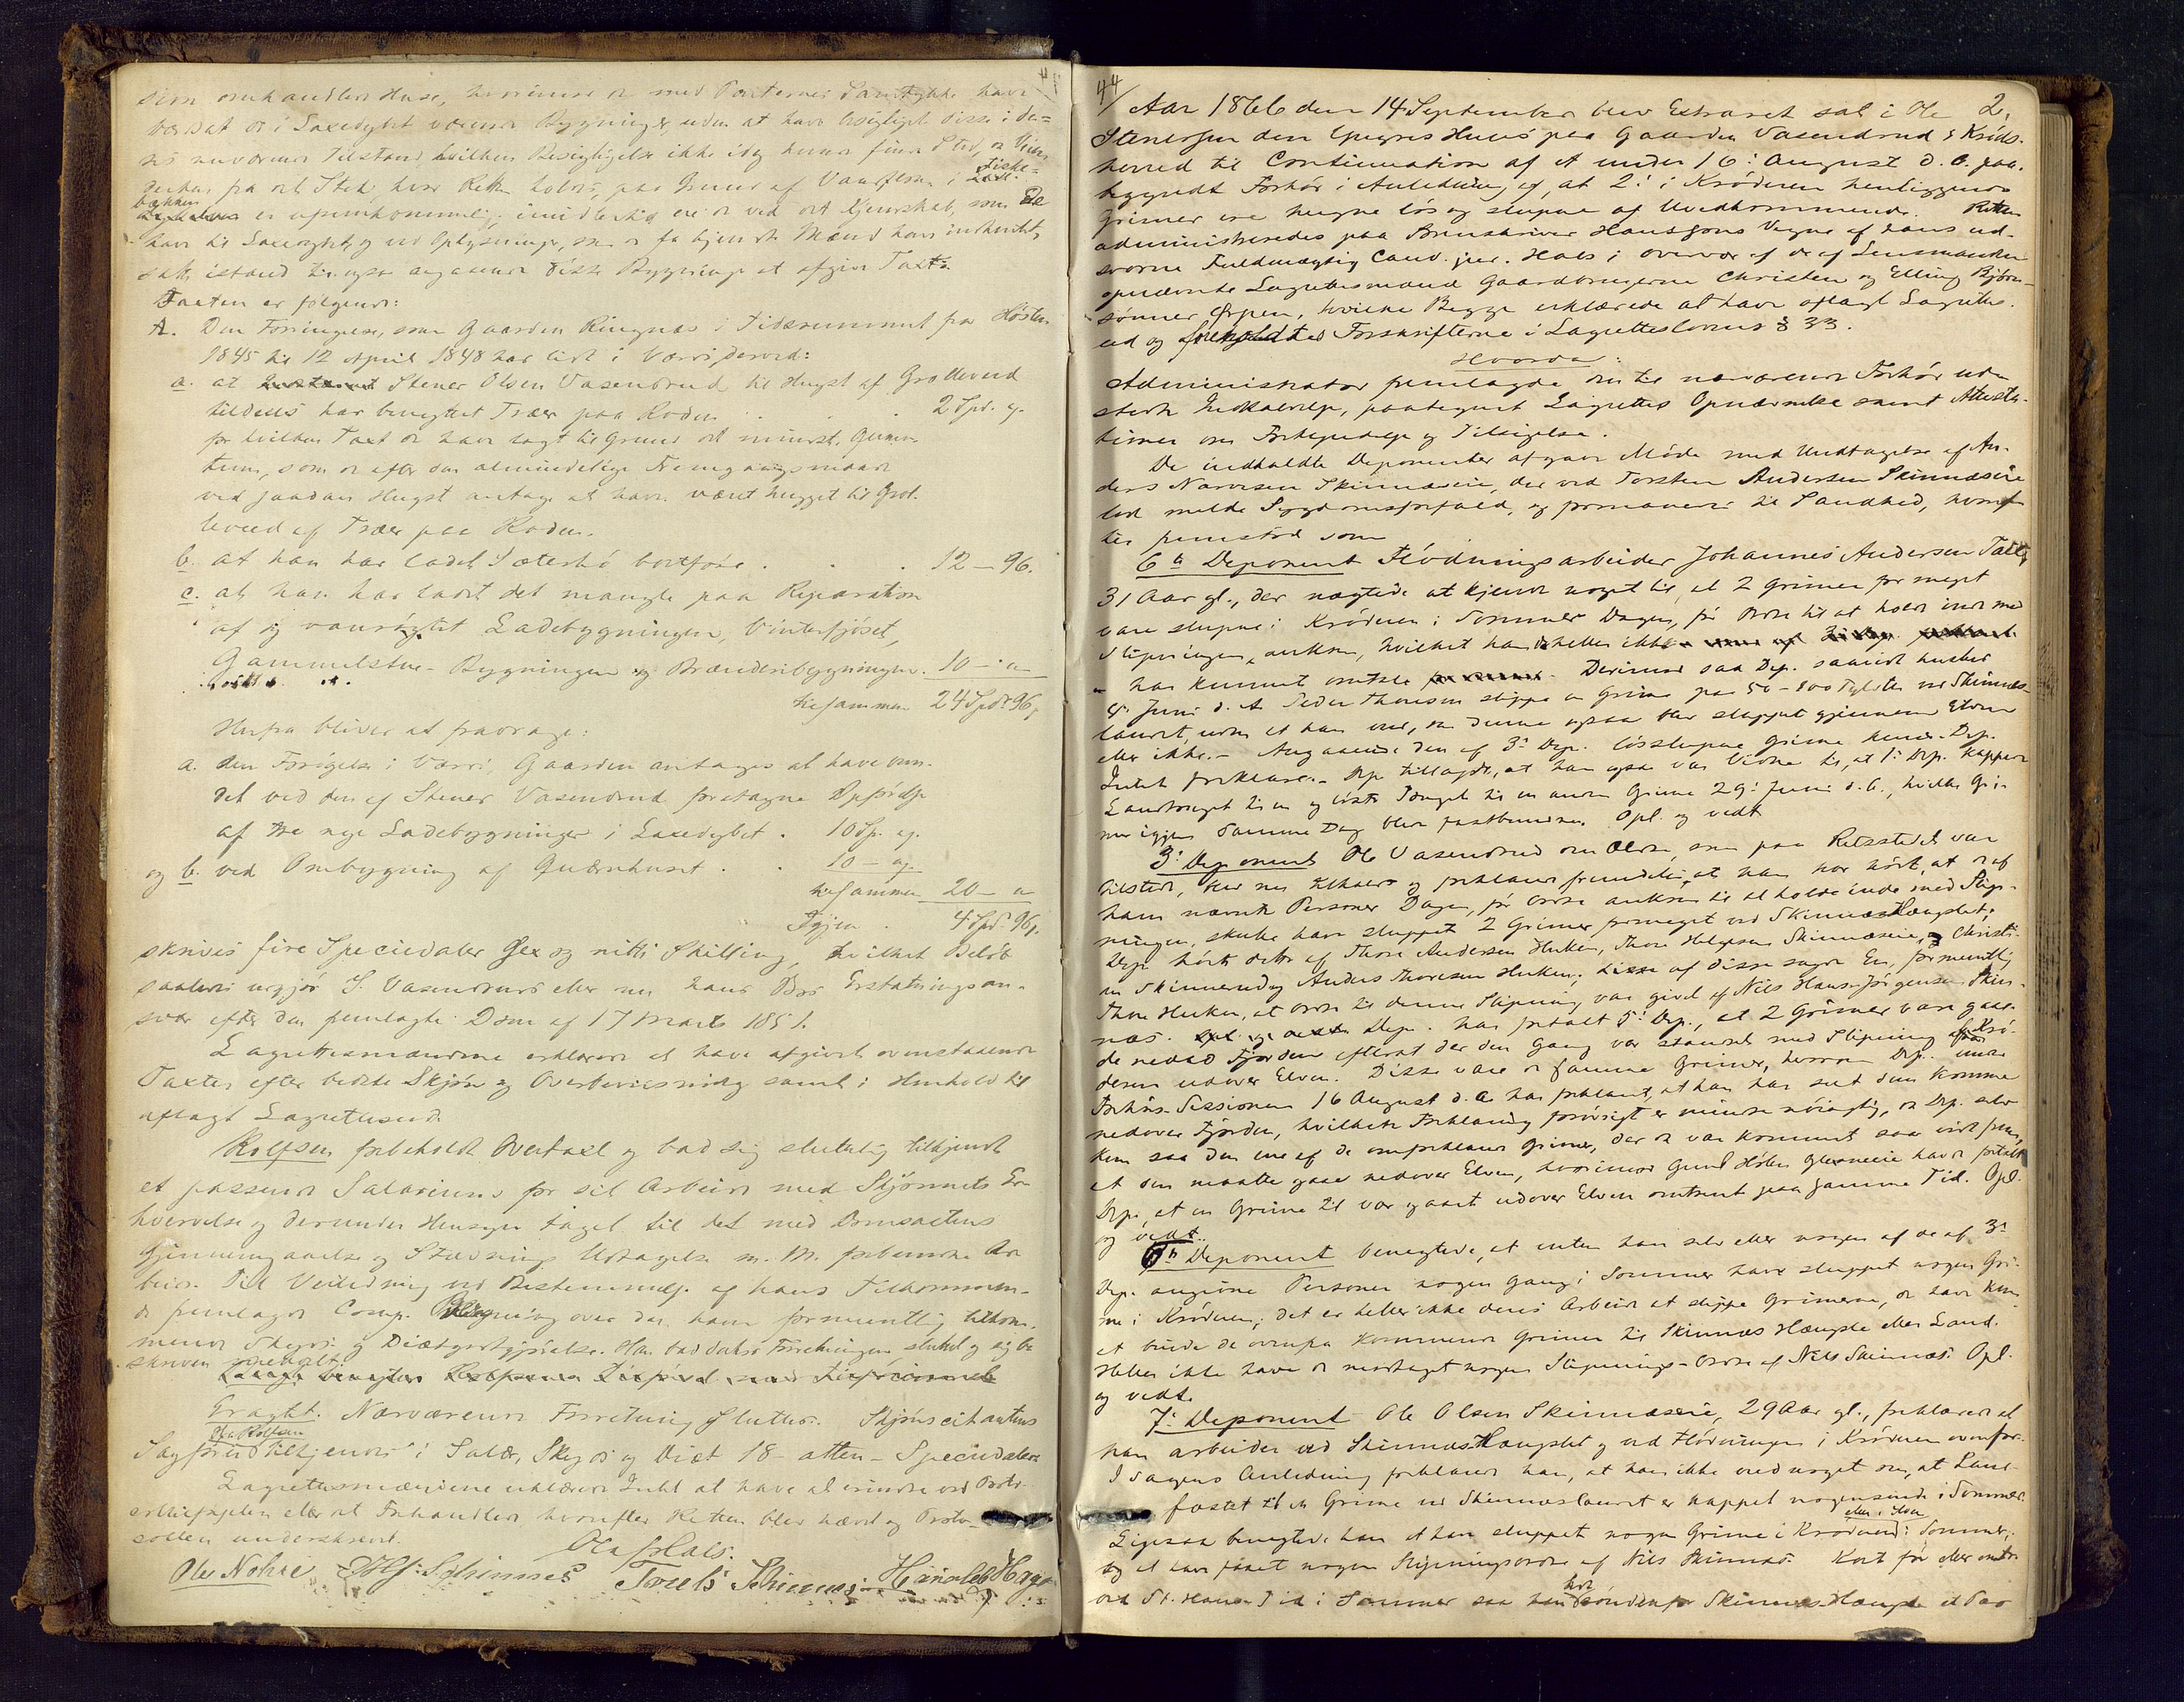 som omhandler Huse, hvorimod de med Parternes Samtykke have
været at de i Laxedybet værende Bygninger, uden at have besigtiget disse i de-
res nuværende Tilstand hvilken Besigtigelse ikke idag kunde finde Sted, da Veien
fra det Sted, hvor Retten holdes, paa Grund af Vandflom i Fiske-
bækken er ufremkommelig; imidlertid ere de ved det Kjendskab, som De
have til Laxedybet, og ved Oplysninger, som de fra kjendte Mænd have indhentet,
satte istand til ogsaa angaaende disse Bygninger at afgive Taxt.
Taxten er følgende:
A. Den Forringelse, som Gaarden Ringnæs i Tidsrummet fra Høsten
1845 til 12 April 1848 har lidt i Værdi derved:
a. at Stener Olsen Vasendrud til Hugst af Grotteved
tildels har benyttet Træer paa Roden . . . 2 Spd. "
for hvilken Taxt de have lagt til Grund det mindste Qvan-
tum, som de efter den almindelige Fremgangsmaade
ved saadan Hugst antage at have været hugget til Grot-
teved af Træer paa Roden.
b. at han har ladet Sæterhø bortføre . . . 12 - 96.
c. at han har ladet det mangle paa Reparation
af og vanrøgtet Ladebygningen, Vinterfjøset,
Gammelstue-Bygningen og Brænderibygningen. 10 - "
tilsammen 24 Spd. 96
Herfra bliver at fradrage:
a. den Forøgelse i Værdi, Gaarden antages at have vun-
det ved den af Stener Vasendrud foretagne Opførelse
af tre nye Ladebygninger i Laxedybet . 10 Sp. "
og b. ved Ombygning af Qværnhuset . . 10 - "
tilsammen 20 - "
Igjen . 4 Spd. 96
skrives fire Speciedaler Sex og nitti Skilling, hvilket Beløb
saaledes udgjør S. Vasendruds eller nu hans Bos Erstatningsan-
svar efter den fremlagte Dom af 17 Marts 1851.
Lagrettesmændene erklærede at have afgivet ovenstaaende
Taxter efter bedste Skjøn og Overbeviisning samt i Henhold til
aflagt Lagrettesed.
Rolfsen forbeholdt Overtaxt og bad sig sluttelig tilkjendt
et passende Salarium for sit Arbeide med Skjønnets Er-
hvervelse og derunder Hensyn taget til det med Domsactens
Gjennemgaaelse og Stævnings Udtagelse m. M. forbundne Ar-
beide. Til Veiledning ved Bestemmelse af hans Tilkommen-
de fremlagde Comp. Regning over den ham formentlig tilkom-
mende Skyds og Diætgodtgjørelse. Han bad derhos Forretningen sluttet og sig be-
skreven meddeelt.
Eragtet. Nærværende Forretning sluttes. Skjønscitantens
Sagfører Rolfsen tilkjendes i Salær, Skyds og Diæt 18 - atten - Speciedaler
Lagrettesmændene erklærede Intet at have at erindre ved Proto-
collationen eller det Forhandlede hvorefter Retten blev hævet og Proto-
collen underskreven.
Olaf Hals.
Ole Nohre Schinnes Troels Schinnes Harald Hagn
44/ Aar 1866 den 14 September blev Extraret sat i Ole 2,
Stenersen den Yngres Huus paa Gaarden Vasendrud i Kröds-
herred til Continuation af et under 16: August d. A. paa-
begyndt Forhör i Anledning af, at 2: i Kröderen henliggende
Grimer ere hugne lös og slupne af Uvedkommende. Retten
administreredes paa Sorenskriver Hanssons Vegne af hans ed-
svorne Fuldmægtig Cand. jur. Hals, i Overvær af de af Lensmanden
opnævnte Lagrettesmænd Gaardbrugerne Christen og Elling Björn-
sønner Ørpen, hvilke Begge erklærede at have aflagt Lagrettes-
ed og foreholdtes Forskrifterne i Lagretteslovens § 33.
Hvorda:
Administrator fremlagde den til nærværende Forhör ud-
stedte Indkaldelse, paategnet Lagrettes Opnævnelse samt Attesta-
tioner om Forkyndelse og Tilsigelse.
De indkaldte Deponenter afgave Møde med Undtagelse af An-
ders Narvesen Skinnæseie, der ved Torsten Andersen Skinnæseie
lod melde Sygdomsforfald, og formanedes til Sandhed, hvoref-
ter fremstod som
6te Deponent Flödningsarbeider Johannes Andersen
31 Aar gl., der nægtede at kjende noget til, at 2 Grimer for meget
vare slupne i Kröderen i Sommer Dagen, för Ordre til at holde inde med
Slipningen ankom, hvilket han heller ikke
har kunnet omtale. Derimod saa Dep. saavidt huskes
4. Juni d. A. Peder Thoresen slippe en Grime paa 50-100 Tylvter ved Skinnæs-
landet, uden at han veed, om denne ogsaa blev sluppet gjennem Elven
eller ikke. - Angaaende den af 3: Dep. lösslupne Grime kunde Dep.
Intet forklare. - Dep. tillagde, at han ogsaa var Vidne til, at 1: Dep. kappede
Landtouget til en og löste Touget til en anden Grime 29: Juni d. A., hvilke Gri-
mer igjen samme Dag bleve fastbundne. Opl. og vedt.
3: Deponent Ole Vasendrud den Ældre, som paa Retsstedet var
tilstede, blev nu tilkaldt og forklarede fremdeles, at han har hört, at de af
ham nævnte Personer Dagen, för Ordre ankom til at holde inde med Slip-
ningen, skulde have sluppet 2 Grimer formeget ved Skinnæs Hængslet;
Dep. hörte dette af Thore Andersen Heken, Thore Helgesen Skinnæseie, Christi-
an Skinnerud og Anders Thoresen Heken; af disse sagde En, formentlig
Thore Heken, at Ordre til denne Slipning var givet af Nils Hans-Jörgensen Skin-
næs. Dep. har fortalt 5: Dep., at 2 Grimer vare gaae-
de nedad Fjorden efterat der den Gang var standset med Slipning fra Krö-
deren udover Elven. Disse vare de samme Grimer, hvorom Dep. under
Forhörs-Sessionen 16 August d. A. har forklaret, at han har seet dem komme
nedover Fjorden, hvilken Forklaring forövrigt er mindre nöiagtig, da Dep. selv
kun saa den ene af de omforklarede Grimer, der da var kommet saa vidt frem,
at den maatte gaae nedover Elven, hvorimod Gunl Holen Glesneeie havde fortalt
Dep., at en Grime til var gaaet udover Elven omtrent paa samme Tid. Opl.
og vedt.
6te Deponent benegtede, at enten han selv eller nogen af de af 3:
Dep. angivne Personer nogen Gang i Sommer have sluppet nogen Gri-
me i Kröderen; det er heller ikke deres Arbeide at slippe Grimerne, de have kun
at binde de ovenfra kommende Grimer til Skinnæs Hængsle eller Land.
Heller ikke have de modtaget nogen Slipnings-Ordre af Nils Skinnæs. Opl.
og vedt.
7: Deponent Ole Olsen Skinnæseie, 29 Aar gl., forklarede at
han arbeider ved Skinnæs Hængslet og ved Flödningen i Kröderen ovenfor.
I Sagens Anledning forklarede han, at han ikke veed noget om, at Land-
fæstet til en Grime ved Skinnæslandet er kappet nogensinde i Sommer.
Ligesaa benegtede han at han sluppet nogen Grime i Kröderen i Sommer,
og at han faaet nogen Slipningsordre af Nils Skinnæs. Kort för eller omtr.
ved St. Hans-Tid i Sommer saa han nordenfor Skinnæs-Hængsle et Par